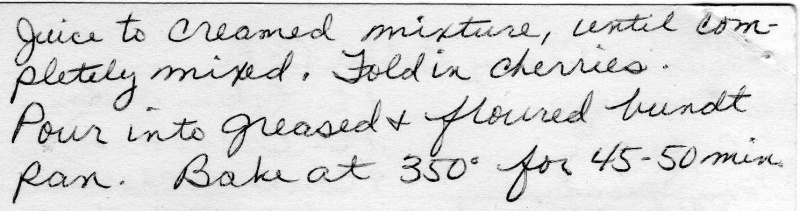 Juice to creamed mixture, until com-
pletely mixed. Fold in cherries.
Pour into greased & floured bundt
pan. Bake at 350° for 45-50 min.